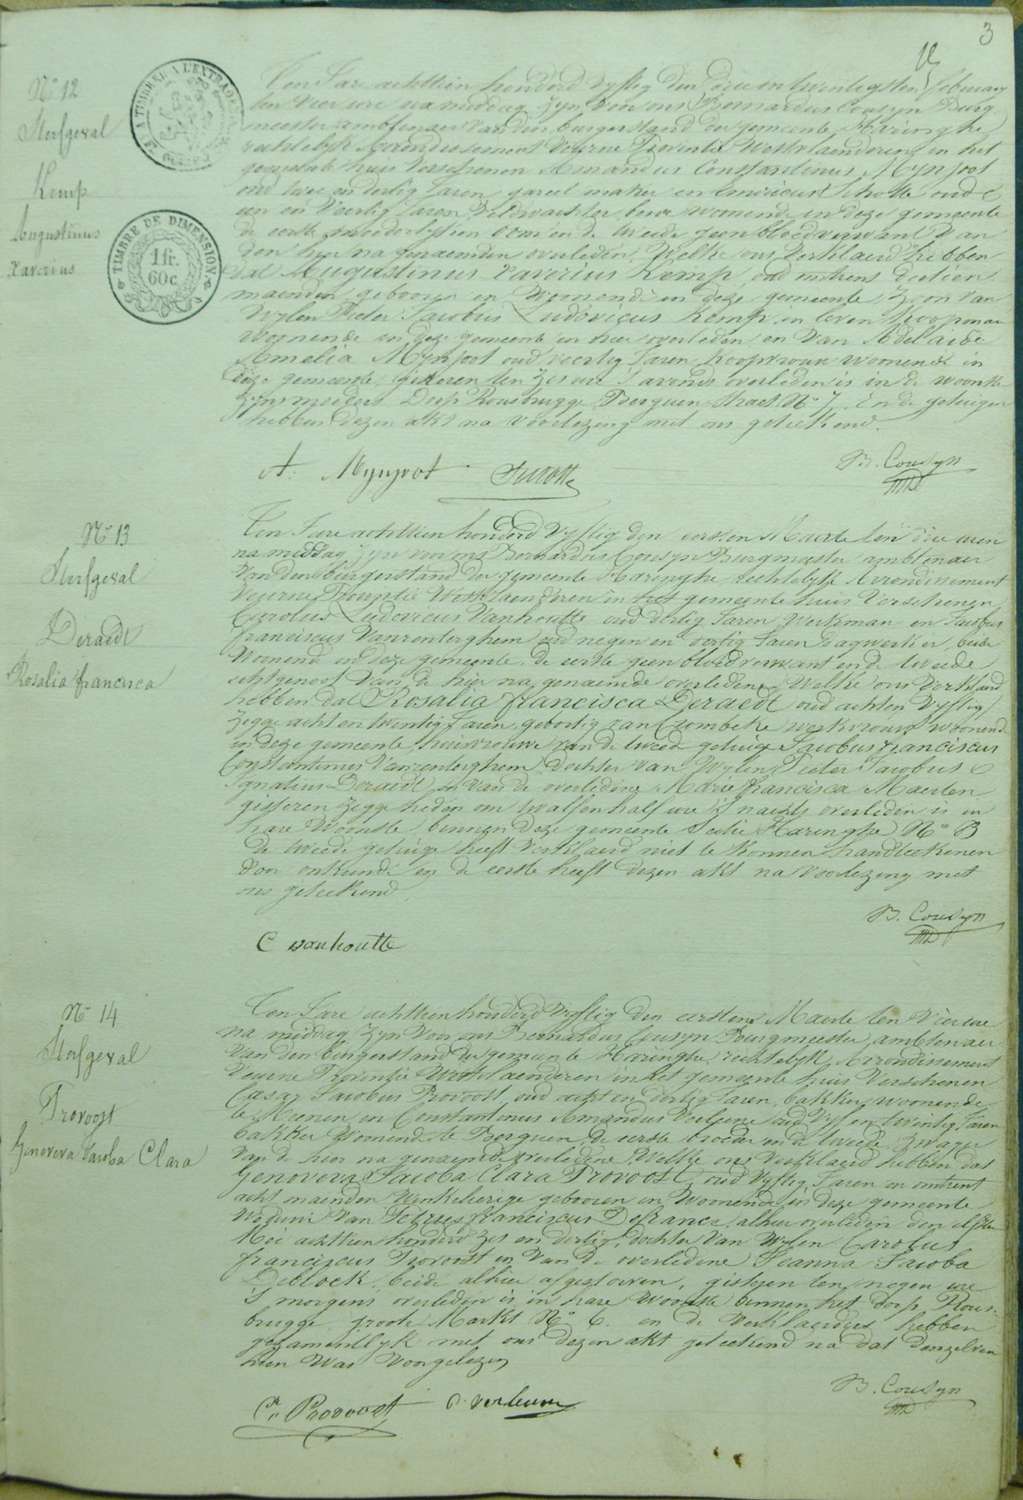 3
N° 12
Sterfgeval
Kemp
Augustinus
Xaverius
TIMBRE DE DIMENSION
1 fr.
60 c
Ten Jare achttien honderd vyftig den drie en twintigsten february
ten vier ure na middag, zyn voor ons Bernardus Cousyn Burg
meester ambtenaer van den burgerstand der gemeente Haringhe
rechtelyk Arrondissement Veurne Provintie Westvlaenderen in het
gemeente huis verschenen Amandus Constantinus Mynsoot
oud twee en dertig Jaren, zareel maker en
een en veertig Jaren Veldwachter beide woonende in deze gemeente
de eerste moederlyken oom en de tweede geen bloedverwant van
den hier na genaemden overleden, Welke ons verklaerd hebben
dat Augustinus Xaverius Kemp, oud
maenden geboren en woonende in deze gemeente, Zoon van
Wylen Pieter Jacobus Ludovicus Kemp in leven
woonende in deze gemeente en hier overleden en van Adelaide
Amelia Mynsoot oud veertig Jaren, koopvrouw woonende in
deze gemeente, gisteren ten zes ure s'avonds overleden is in de woonste
zyns moeders Dorp Rousbrugge straet N° 7. En de getuigen
hebben dezen akt na voorlezing met ons geteekend.
A. Mynsoot
B. Cousyn
N° 13
Sterfgeval
Deraedt
Rosalia francisca
Ten Jare achttien honderd vyftig den eersten Maerte ten drie uren
na middag zyn voor ons Bernardus Cousyn Burgmeester ambtenaer
Van den burgerstand der gemeente Haringhe rechtelyk Arrondissement
Veurne Provintie Westvlaenderen in het gemeente huis verschenen
Carolus Ludovicus Vanhoutte oud dertig Jaren Werkman en Jacobus
franciscus Vanzenterghem oud negen en veertig Jaren dagwerker, beide
Woonende in deze gemeente, de eerste geen bloedverwant en de tweede
echtgenoot van de hier na genaemde overledene, Welke ons verklaerd
hebben dat Rosalia Francisca Deraedt oud achten vyftig
zegge acht en twintig Jaren, geboortig van Crombeke werkvrouw woonende
in deze gemeente huisvrouwe van de tweede getuige Jacobus franciscus
Constantinus Vanzenterghem dochter van Wylen Pieter Jacobus
Ignatius Deraedt en van de overledene Marie Francisca Maerten
gisteren zegge heden om half ure 's nachts overleden is in
hare woonste, binnen deze gemeente Sectie Haringhe N° B
de tweede getuige heeft verklaerd niet te konnen handteekenen
door onkunde en de eerste heeft dezen akt na voorlezing met
ons geteekend.
B. Cousyn
C vanhoutte
N° 14
Sterfgeval
Provoost
Genoveva Jacoba Clara
Ten Jare achttien honderd vyftig den eersten Maerte ten vier ure
na middag zyn voor ons Bernardus Cousyn Burgmeester ambtenaer
Van den burgerstand der gemeente Haringhe, rechtelyk Arrondissement
Veurne Provintie Westvlaenderen in het gemeente huis verschenen
Jacobus Provoost, oud acht en dertig Jaren, bakker, woonende
te Meenen en Constantinus Amandus oud vyf en twintig Jaren
bakker Woonende te de eerste broeder en de tweede zwager
van de hier na genaemde overledene, Welke ons verklaerd hebben dat
Genoveva Jacoba Clara Provoost, oud vyftig Jaren en omtrent
acht maenden Winkelierige geboren en Woonende in deze gemeente
Weduwe van Petrus franciscus Defrance, alhier overleden den
Mei achttien honderd zes en dertig, dochter van Wylen Carolus
franciscus Provoost en van de overledene Joanna Jacoba
Deblock, beide alhier afgestorven, gisteren ten negen ure
's morgens overleden is in hare woonste binnen het dorp Rous-
brugge, groote Markt N° 6. en de verklaerders hebben
gezamentlyk met ons dezen akt geteekend na dat denzelven
hun was voorgelezen
B. Cousyn
Provoost